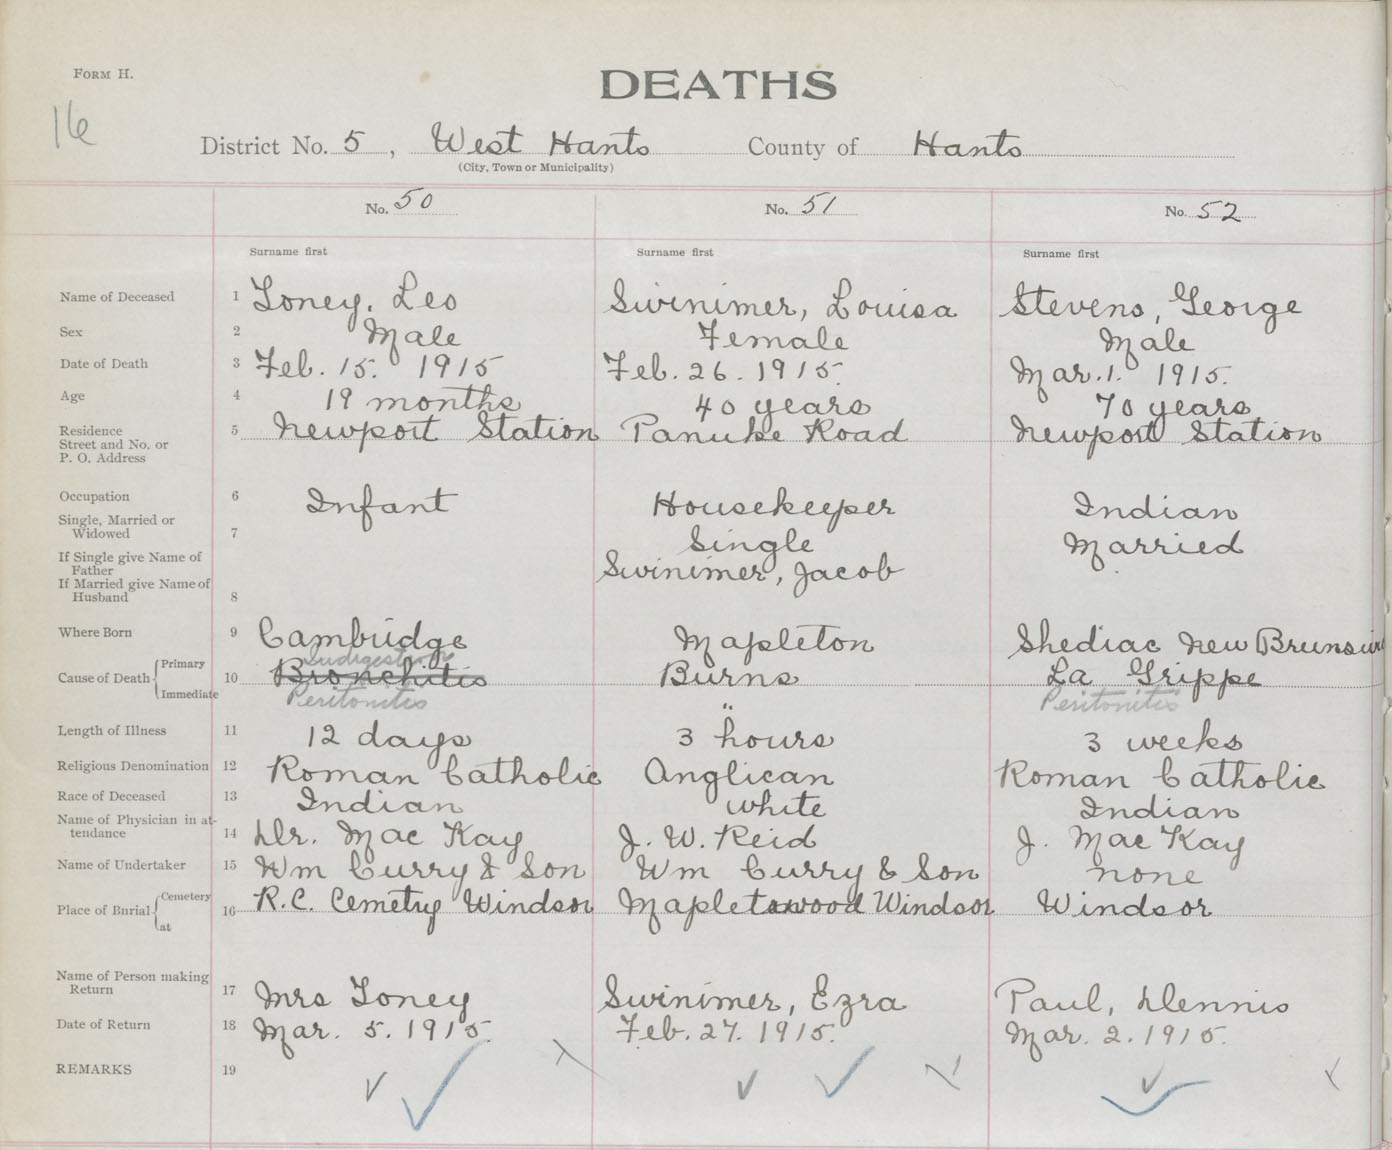 FORM H.
DEATHS
16
District No. 5, West Hants County of Hants
(City, Town or Municipality)
No. 50 No. 51 No. 52
Surname first Surname first Surname first
Name of Deceased 1 Toney, Leo Swinimer, Louisa Stevens, George
Sex 2 Male Female Male
Date of Death 3 Feb. 15. 1915 Feb. 26. 1915. Mar. 1. 1915.
Age 4 19 months 40 years 70 years
Residence Street and No. or P. O. Address 5 Newport Station Panuke Road Newport Station
Occupation 6 Infant Housekeeper Indian
Single, Married or Widowed 7 Single Married
If Single give Name of Father Swinimer, Jacob
If Married give Name of Husband 8
Where Born 9 Cambridge Mapleton Shediac New Brunswick
Indigestion
Cause of Death Primary Immediate 10 Bronchitis Burns La Grippe
Peritonitis " Peritonitis
Length of Illness 11 12 days 3 hours 3 weeks
Religious Denomination 12 Roman Catholic Anglican Roman Catholic
Race of Deceased 13 Indian white Indian
Name of Physician in attendance 14 Dr. Mac Kay J. W. Reid J. Mac Kay
Name of Undertaker 15 Wm Curry & Son Wm Curry & Son none
Place of Burial Cemetery at 16 R.C. Cemetry Windsor Maplewood Windsor Windsor
Name of Person making Return 17 Mrs Toney Swinimer, Ezra Paul, Dennis
Date of Return 18 Mar. 5. 1915. Feb. 27. 1915. Mar. 2. 1915.
REMARKS 19